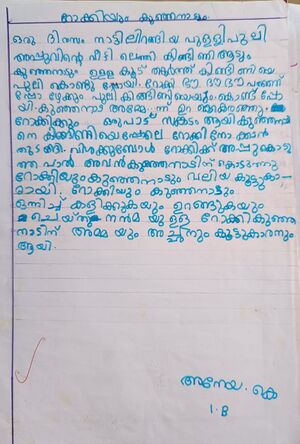 റോക്കിയും കുഞ്ഞനാടും
ഒരു ദിവസം നാട്ടിലിറങ്ങിയ പുള്ളിപുലി
അപ്പുവിന്റെ വീട്ടി ലെത്തി കിങ്ങിണി ആടും
കുഞ്ഞനാടും ഉള്ള കൂട് തകർത്ത് കിങ്ങിണിയെ
പുലി കൊണ്ടു പോയി. റോക്കി ഭൗ ഭൗ ഭൗ പറഞ്ഞ്
പ്പോ ഴേക്കും പുലി കിങ്ങിണിയെയും കൊണ്ട് പോ
യി. കുഞ്ഞനാട് അമ്മേ ന്ന് ഉറക്കെ കരഞ്ഞു.
റോക്കിക്കും ഒരുപാട് സങ്കടം ആയി കുഞ്ഞനാടി
നെ കിങ്ങിണിയെപ്പോലെ റോക്കി നോക്കാൻ
തുടങ്ങി. വിശക്കുമ്പോൾ റോക്കിക്ക് അപ്പു കൊടു
ത്ത പാൽ അവൻ കുഞ്ഞനാടിന് കൊടുത്തു
റോക്കിയും കുഞ്ഞനാടും വലിയ കൂട്ടുകാ
രായി. റോക്കിയും കുഞ്ഞനാട്ടും
ഒന്നിച്ച് കളിക്കുകയും ഉറങ്ങുകയും
ചെയ്തു നന്മ യുള്ള റോക്കി കുഞ്ഞ
നാടിന് അമ്മ യും അച്ഛനും കൂട്ടുകാരനും
ആയി.
അനേയ. കെ
1. B